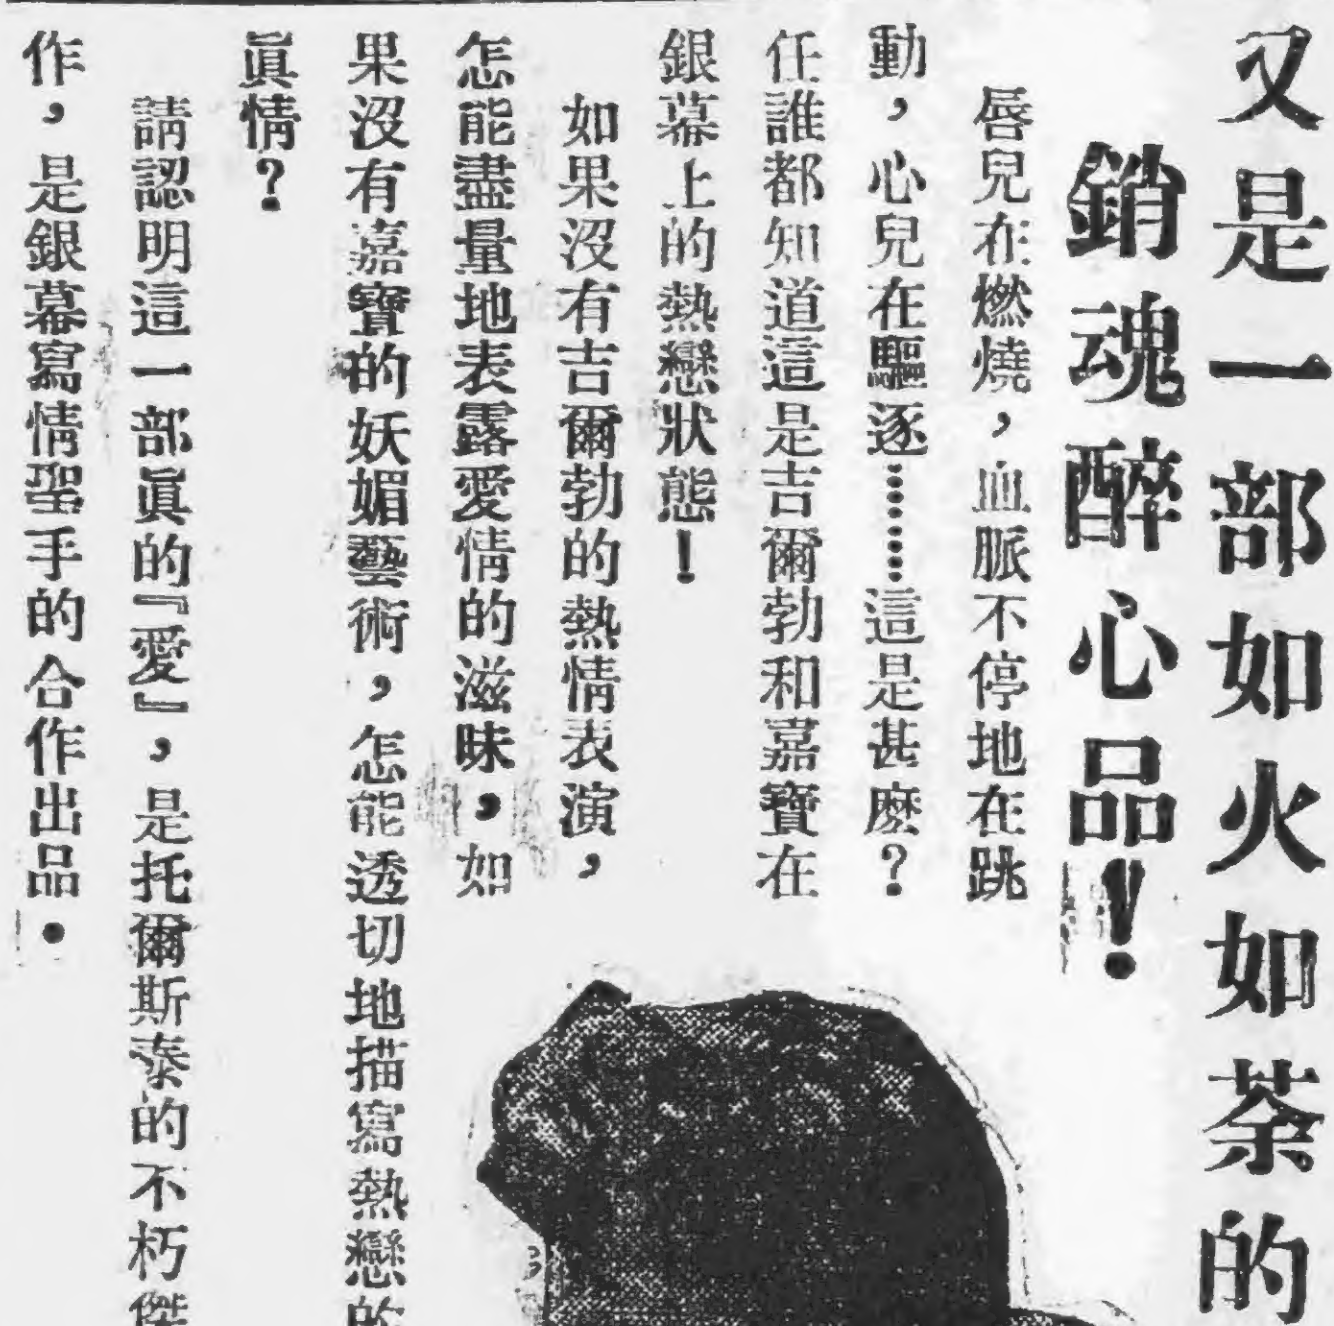 又是一部如火如荼的
銷魂醉心品!
唇兒在燃燒,血脈不停地在跳
動,心兒在驅逐………這是甚麽?
任誰都知道這是吉爾勃和嘉寶在
銀幕上的熱戀狀態!
如果沒有吉爾勃的熱情表演,
怎能盡量地表露愛情的滋味,如
果沒有嘉寶的妖媚藝術,怎能透切地描寫熱戀的
眞情?
請認明這一部眞的『愛』,是托爾斯泰的不朽傑
作,是銀幕寫情聖手的合作出品.